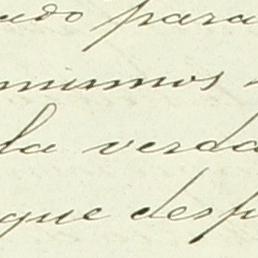 para
mismos
la verda
que desp